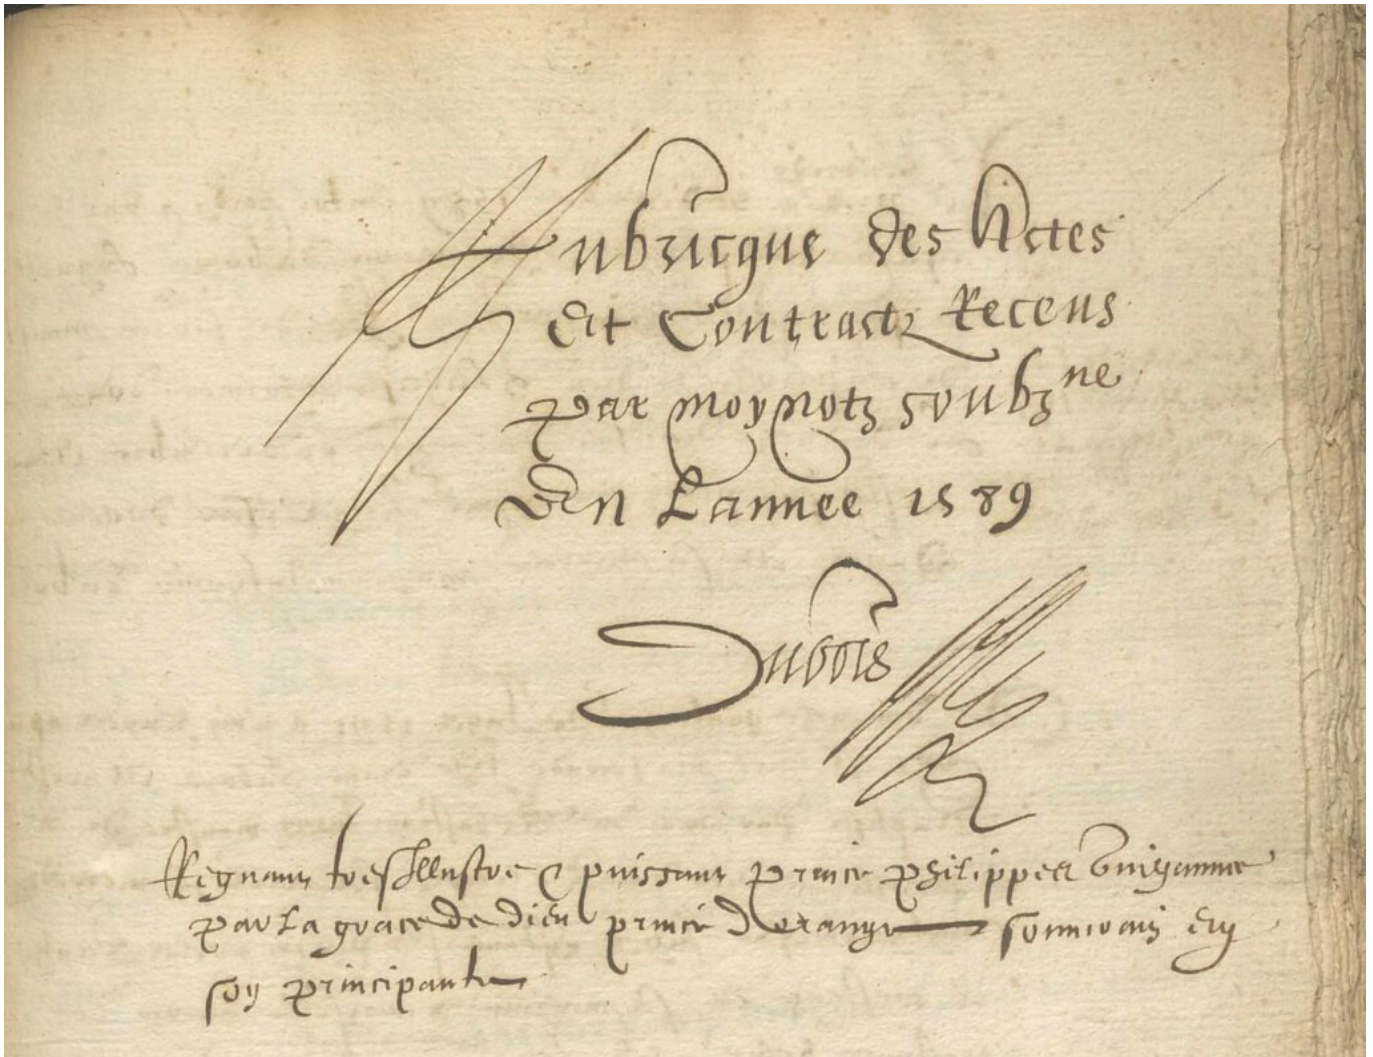 Rubricque des Actes
Et Contractz Receus
par moy notz soubzne
En Lannee 1589
Dubois
Regnant tresIllustre & puissant prince philippes guihaume
par La grace de dieu prince dorange souuerain en
soy principaulte